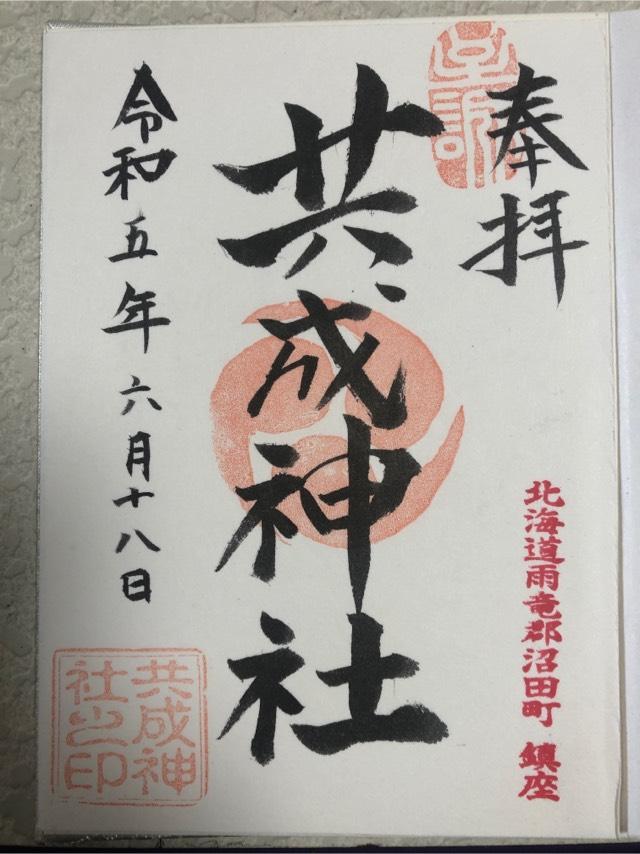 奉拝
北海道雨竜郡沼田町 鎮座
共成神社
共成神社之印
令和五年六月十八日